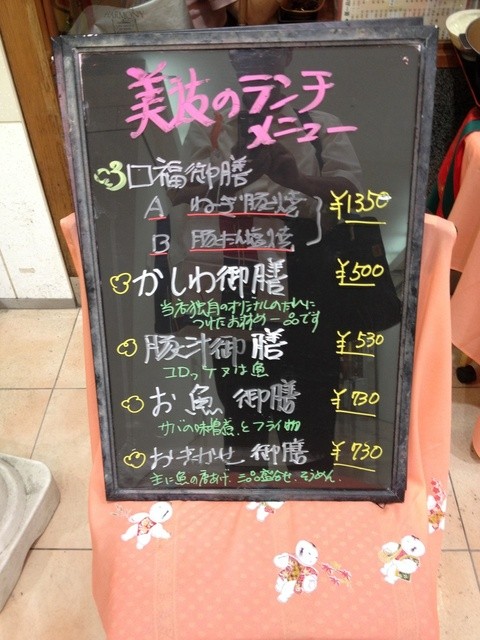 美技のランチ
メニュー
口福御膳
A ねぎ豚焼
B 豚たん塩焼
¥1350
かしわ御膳 ¥500
当店独自のオリジナルのたれに
つけたお奨め一品です
豚汁御膳 ¥530
コロッケ又は魚
お魚御膳 ¥730
サバの味噌煮とフライ物
おまかせ御膳 ¥730
主に魚の唐あげ.三品盛合せ.そうめん.